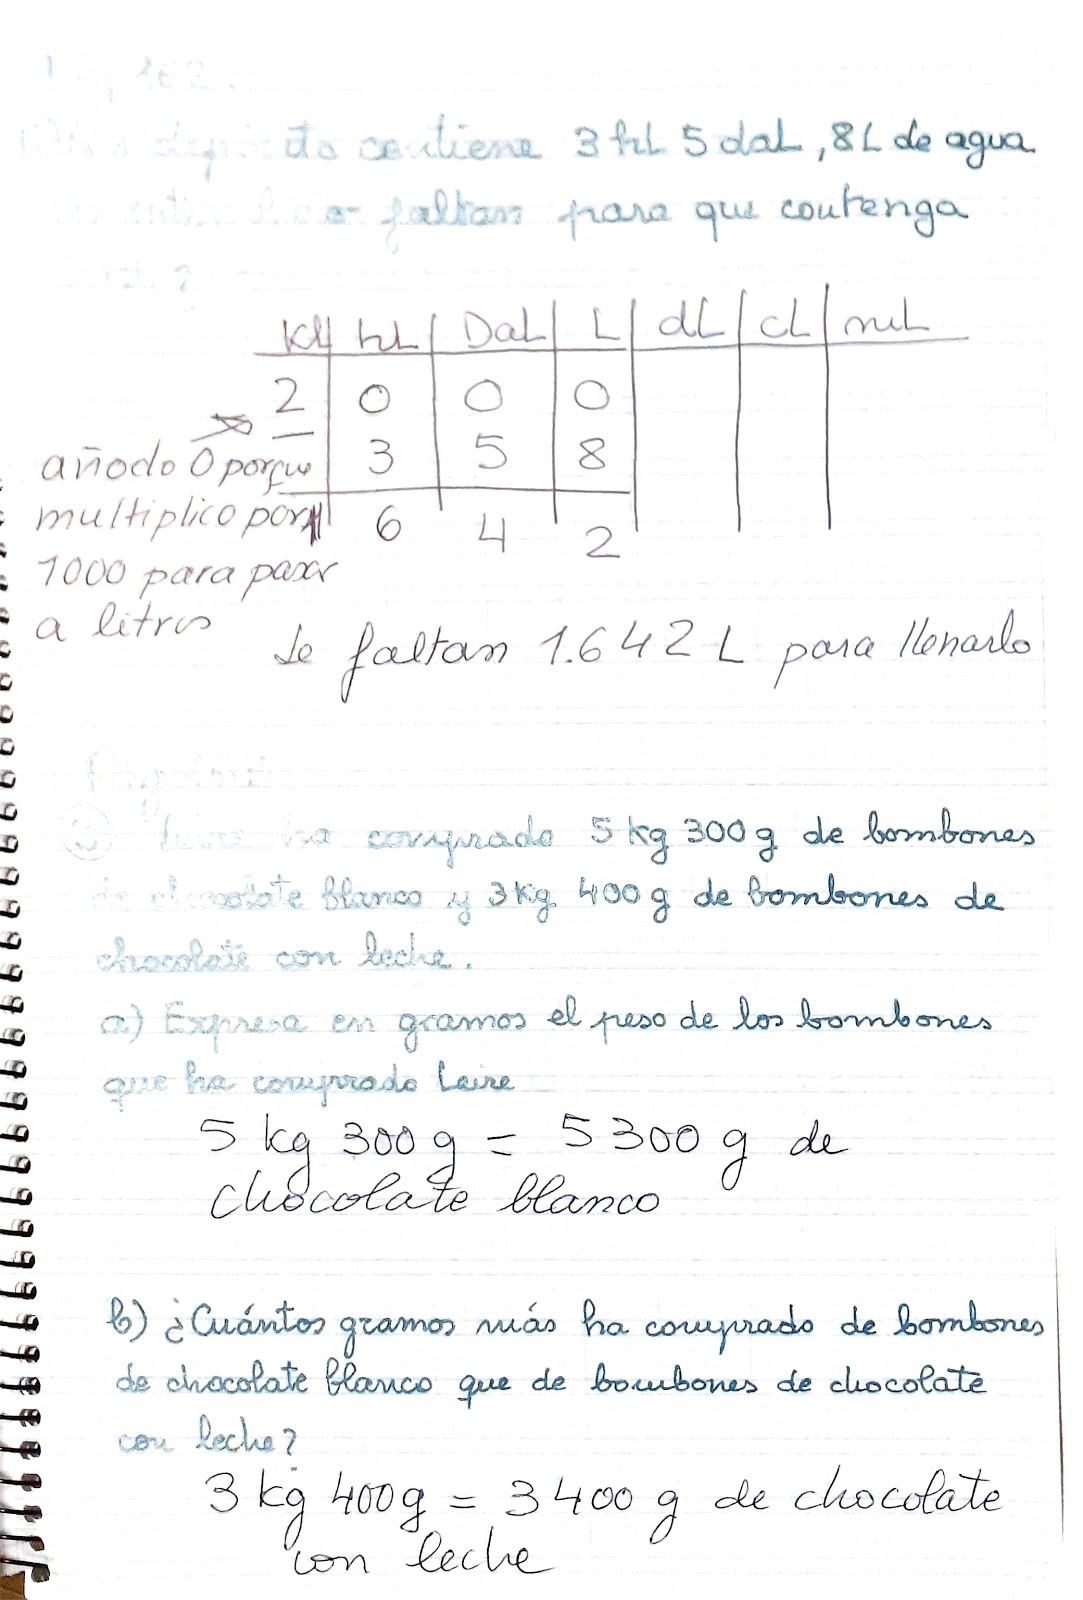 162.
depósito contiene 3 hL 5 daL, 8 L de agua
faltan para que contenga
?
KL hL DaL L dL cL mL
2 0 0 0
3 5 8
añado 0 porque
multiplico por
1 6 4 2
1000 para pasar
a litros
Le faltan 1.642 L para llenarlo
ha comprado 5 kg 300 g de bombones
de chocolate blanco y 3 kg 400 g de bombones de
chocolate con leche.
a) Expresa en gramos el peso de los bombones
que ha comprado Leire
5 kg 300 g = 5300 g de
chocolate blanco
b) ¿Cuántos gramos más ha comprado de bombones
de chocolate blanco que de bombones de chocolate
con leche?
3 kg 400 g = 3400 g de chocolate
con leche